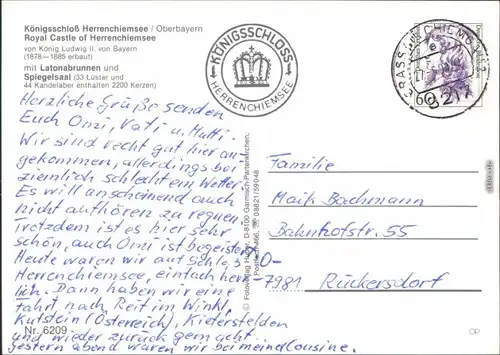 Königsschloß Herrenchiemsee / Oberbayern
Royal Castle of Herrenchiemsee
von König Ludwig II. von Bayern
(1878—1885 erbaut)
mit Latonabrunnen und
Spiegelsaal (33 Lüster und
44 Kandelaber enthalten 2200 Kerzen)
Herzliche Grüße senden
Euch Omi, Vati u. Mutti.
Wir sind recht gut hier an-
gekommen, allerdings bei
ziemlich schlechtem Wetter.
Es will anscheinend auch
nicht aufhören zu regnen.
Trotzdem ist es hier sehr
schön, auch Omi ist begeistert.
Heute waren wir auf Schloß
Herrenchiemsee, einfach herr-
lich. Dann haben wir eine
Fahrt nach Reit im Winkl,
Kufstein (Österreich), Kiefersfelden
und wieder zurück gemacht.
gestern abend waren wir bei meind Cousine.
Nr. 6209
KÖNIGSSCHLOSS
HERRENCHIEMSEE
D-8100 Garmisch-Partenkirchen,
08821/59048
60
8217
Familie
Maik Bachmann
Bahnhofstr. 55
O-
7981 Rückersdorf